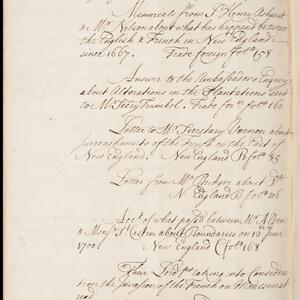 Memorials from Sr. Henry Ashurst
& Mr. Nelson about what has happened between
the English & French in New England
since 1667. Trade foreign fol. 158
Answer to the Ambassadors Enquiry
about Alterations in the Plantations sent
to Mr. Secry Trumbol. Trade for fol. 160
Letter to Mr. Secretary Vernon about
Incroachments of the French on the East of
New England. New England B fol. 85
Letter from Mr. Bridger about Do
N England B fol. 106
Acct. of what past between Mr. Alden
& Monsr. St. about Boundaries on 13 June
1700. New England C fol. 168
Their Lordps taking into Considera
tion the Invasion of the French on